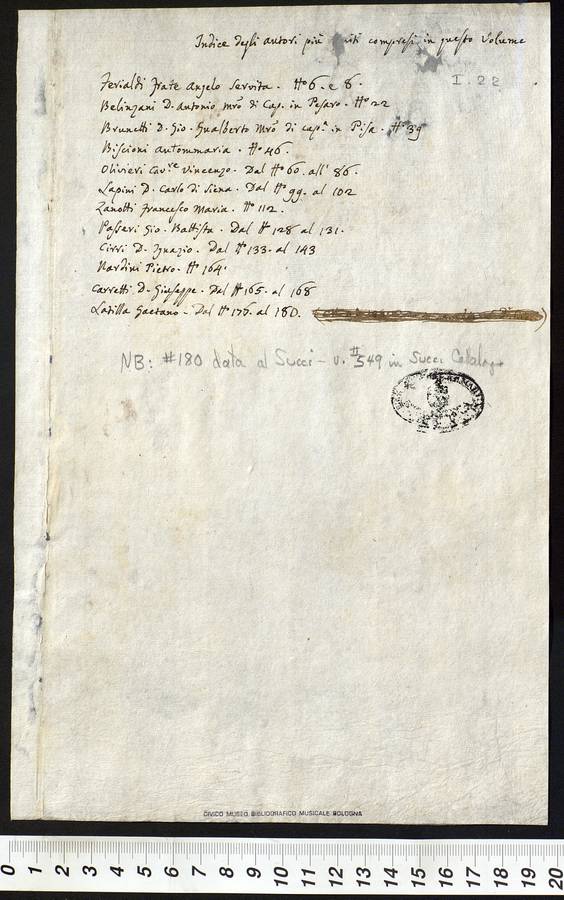 Indice degli autori più compresi in questo Volume
I. 22
Ferialdi Frate Angelo Servita. N° 6. e 8.
Belinzani D. Antonio Mro di Cap. in Pesaro. N° 22
Brunetti D. Gio. Gualberto Mro di capa in Pisa. N° 39
Biscioni Antommaria. N° 46.
Olivieri Cavre Vincenzo. Dal N° 60. all' 86.
Lapini D. Carlo di Siena. Dal N° 99. al 102
Zanotti Francesco Maria. N° 112.
Passeri Gio. Battista. Dal N° 128 al 131.
Cirri D. Ignazio. Dal N° 133. al 143
Nardini Pietro. N° 164.
Carretti D. Giuseppe. Dal N° 165. al 168
Latilla Gaetano. Dal N° 176. al 180.
NB: #180 data al Succi - v. #549 in Succi Catalogo
CIVICO MUSEO BIBLIOGRAFICO MUSICALE BOLOGNA
0 1 2 3 4 5 6 7 8 9 10 11 12 13 14 15 16 17 18 19 20